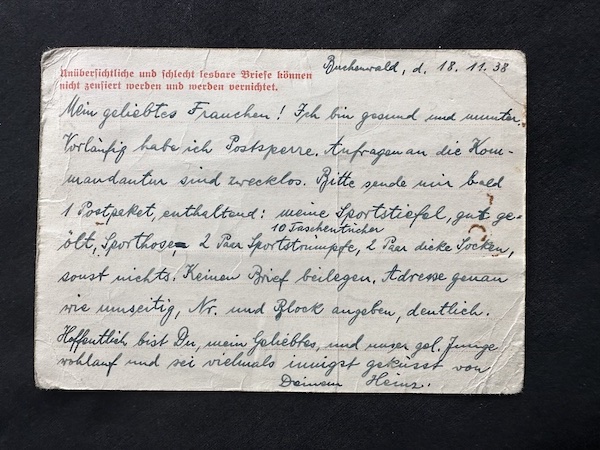 Unübersichtliche und schlecht lesbare Briefe können
nicht zensiert werden und werden vernichtet.
Buchenwald, d. 18. 11. 38
Mein geliebtes Frauchen! Ich bin gesund und munter.
Vorläufig habe ich Postsperre. Anfragen an die Kom-
mandantur sind zwecklos. Bitte sende mir bald
1 Postpaket, enthaltend: meine Sportstiefel, gut ge-
10 Taschentücher
ölt, Sporthose, 2 Paar Sportstrümpfe, 2 Paar dicke Socken,
sonst nichts. Keinen Brief beilegen. Adresse genau
wie umseitig, Nr. und Block angeben, deutlich.
Hoffentlich bist Du, mein Geliebtes, und unser gel. Junge
wohlauf und sei vielmals innigst geküsst von
Deinem Heinz.